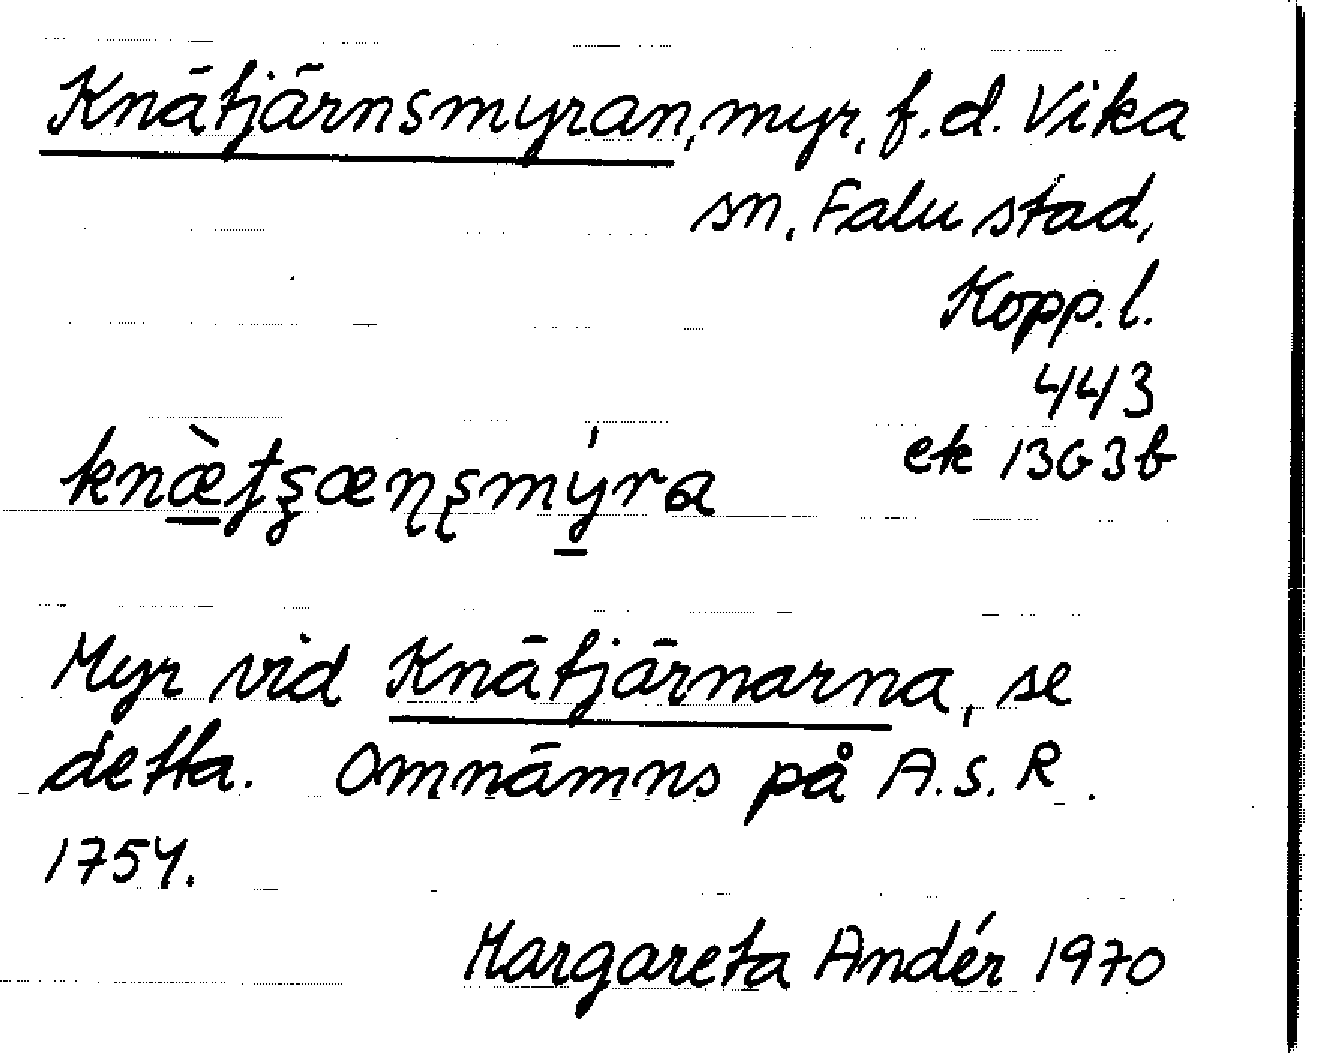 Knätjärnsmyran, myr, f.d. Vika
sn, Falu stad,
Kopp. l.
443
ek 13G3b
Myr vid Knätjärnarna, se
detta. Omnämns på A.S.R.
1754.
Margareta Andér 1970